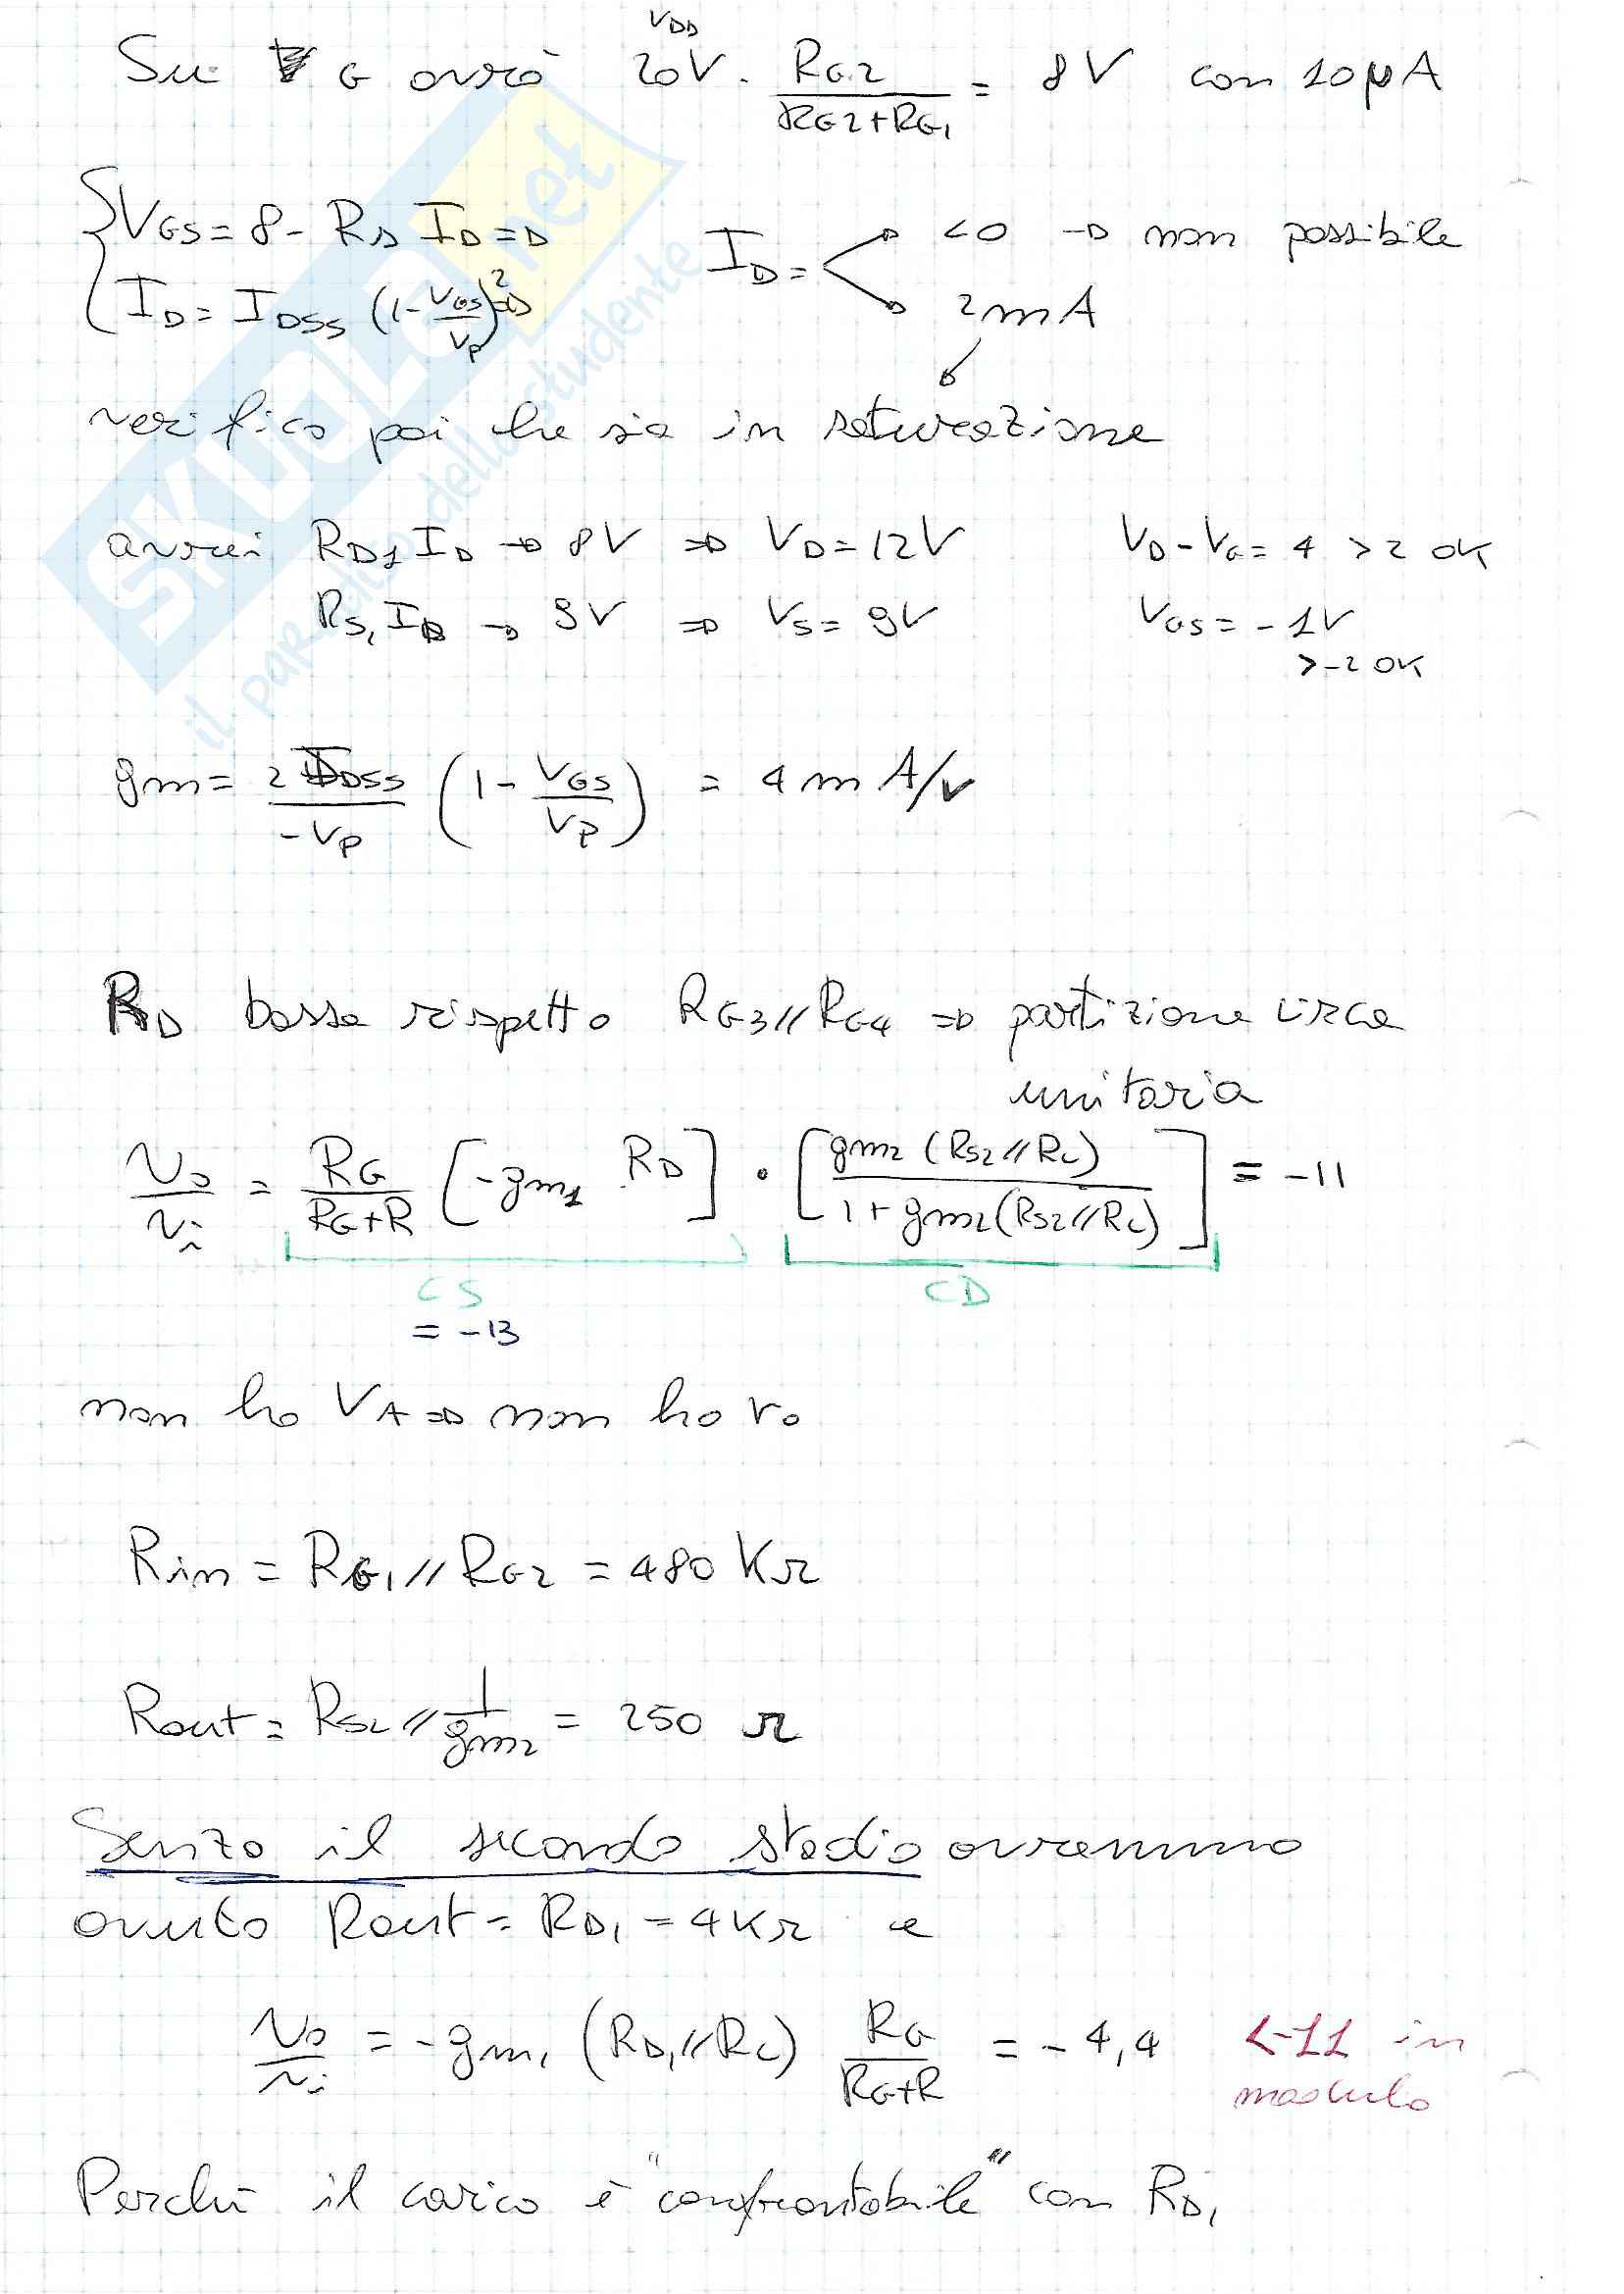 V_DD
Su G avrò 20V · R_G2 / (R_G2+R_G1) = 8V con 10μA
{ V_GS = 8 - R_D I_D =D
I_D = I_DSS (1 - V_GS/V_P)² =D
I_D = < <0 → non possibile
2mA
verifico poi che sia in saturazione
avrei R_D1 I_D → 8V ⇒ V_D = 12V V_D - V_G = 4 > 2 OK
R_S1 I_D → 9V ⇒ V_S = 9V V_GS = -1V
> -2 OK
gm = 2 I_DSS / -V_P (1 - V_GS/V_P) = 4 mA/V
R_D bassa rispetto R_G3//R_G4 ⇒ partizione circa
unitaria
v_o/v_i = R_G/(R_G+R) [-gm1 R_D] · [gm2 (R_S2//R_L) / 1+gm2(R_S2//R_L)] = -11
CS CD
= -13
non ho V_A ⇒ non ho r_o
Rin = R_G1//R_G2 = 480 KΩ
Rout = R_S2 // 1/gm2 = 250 Ω
Senza il secondo stadio avremmo
avuto Rout = R_D1 = 4KΩ e
v_o/v_i = -gm1 (R_D1//R_L) R_G/(R_G+R) = -4,4 <-11 in
modulo
Perchè il carico è "confrontabile" con R_D1
SKUOLA.net
il paradiso dello studente